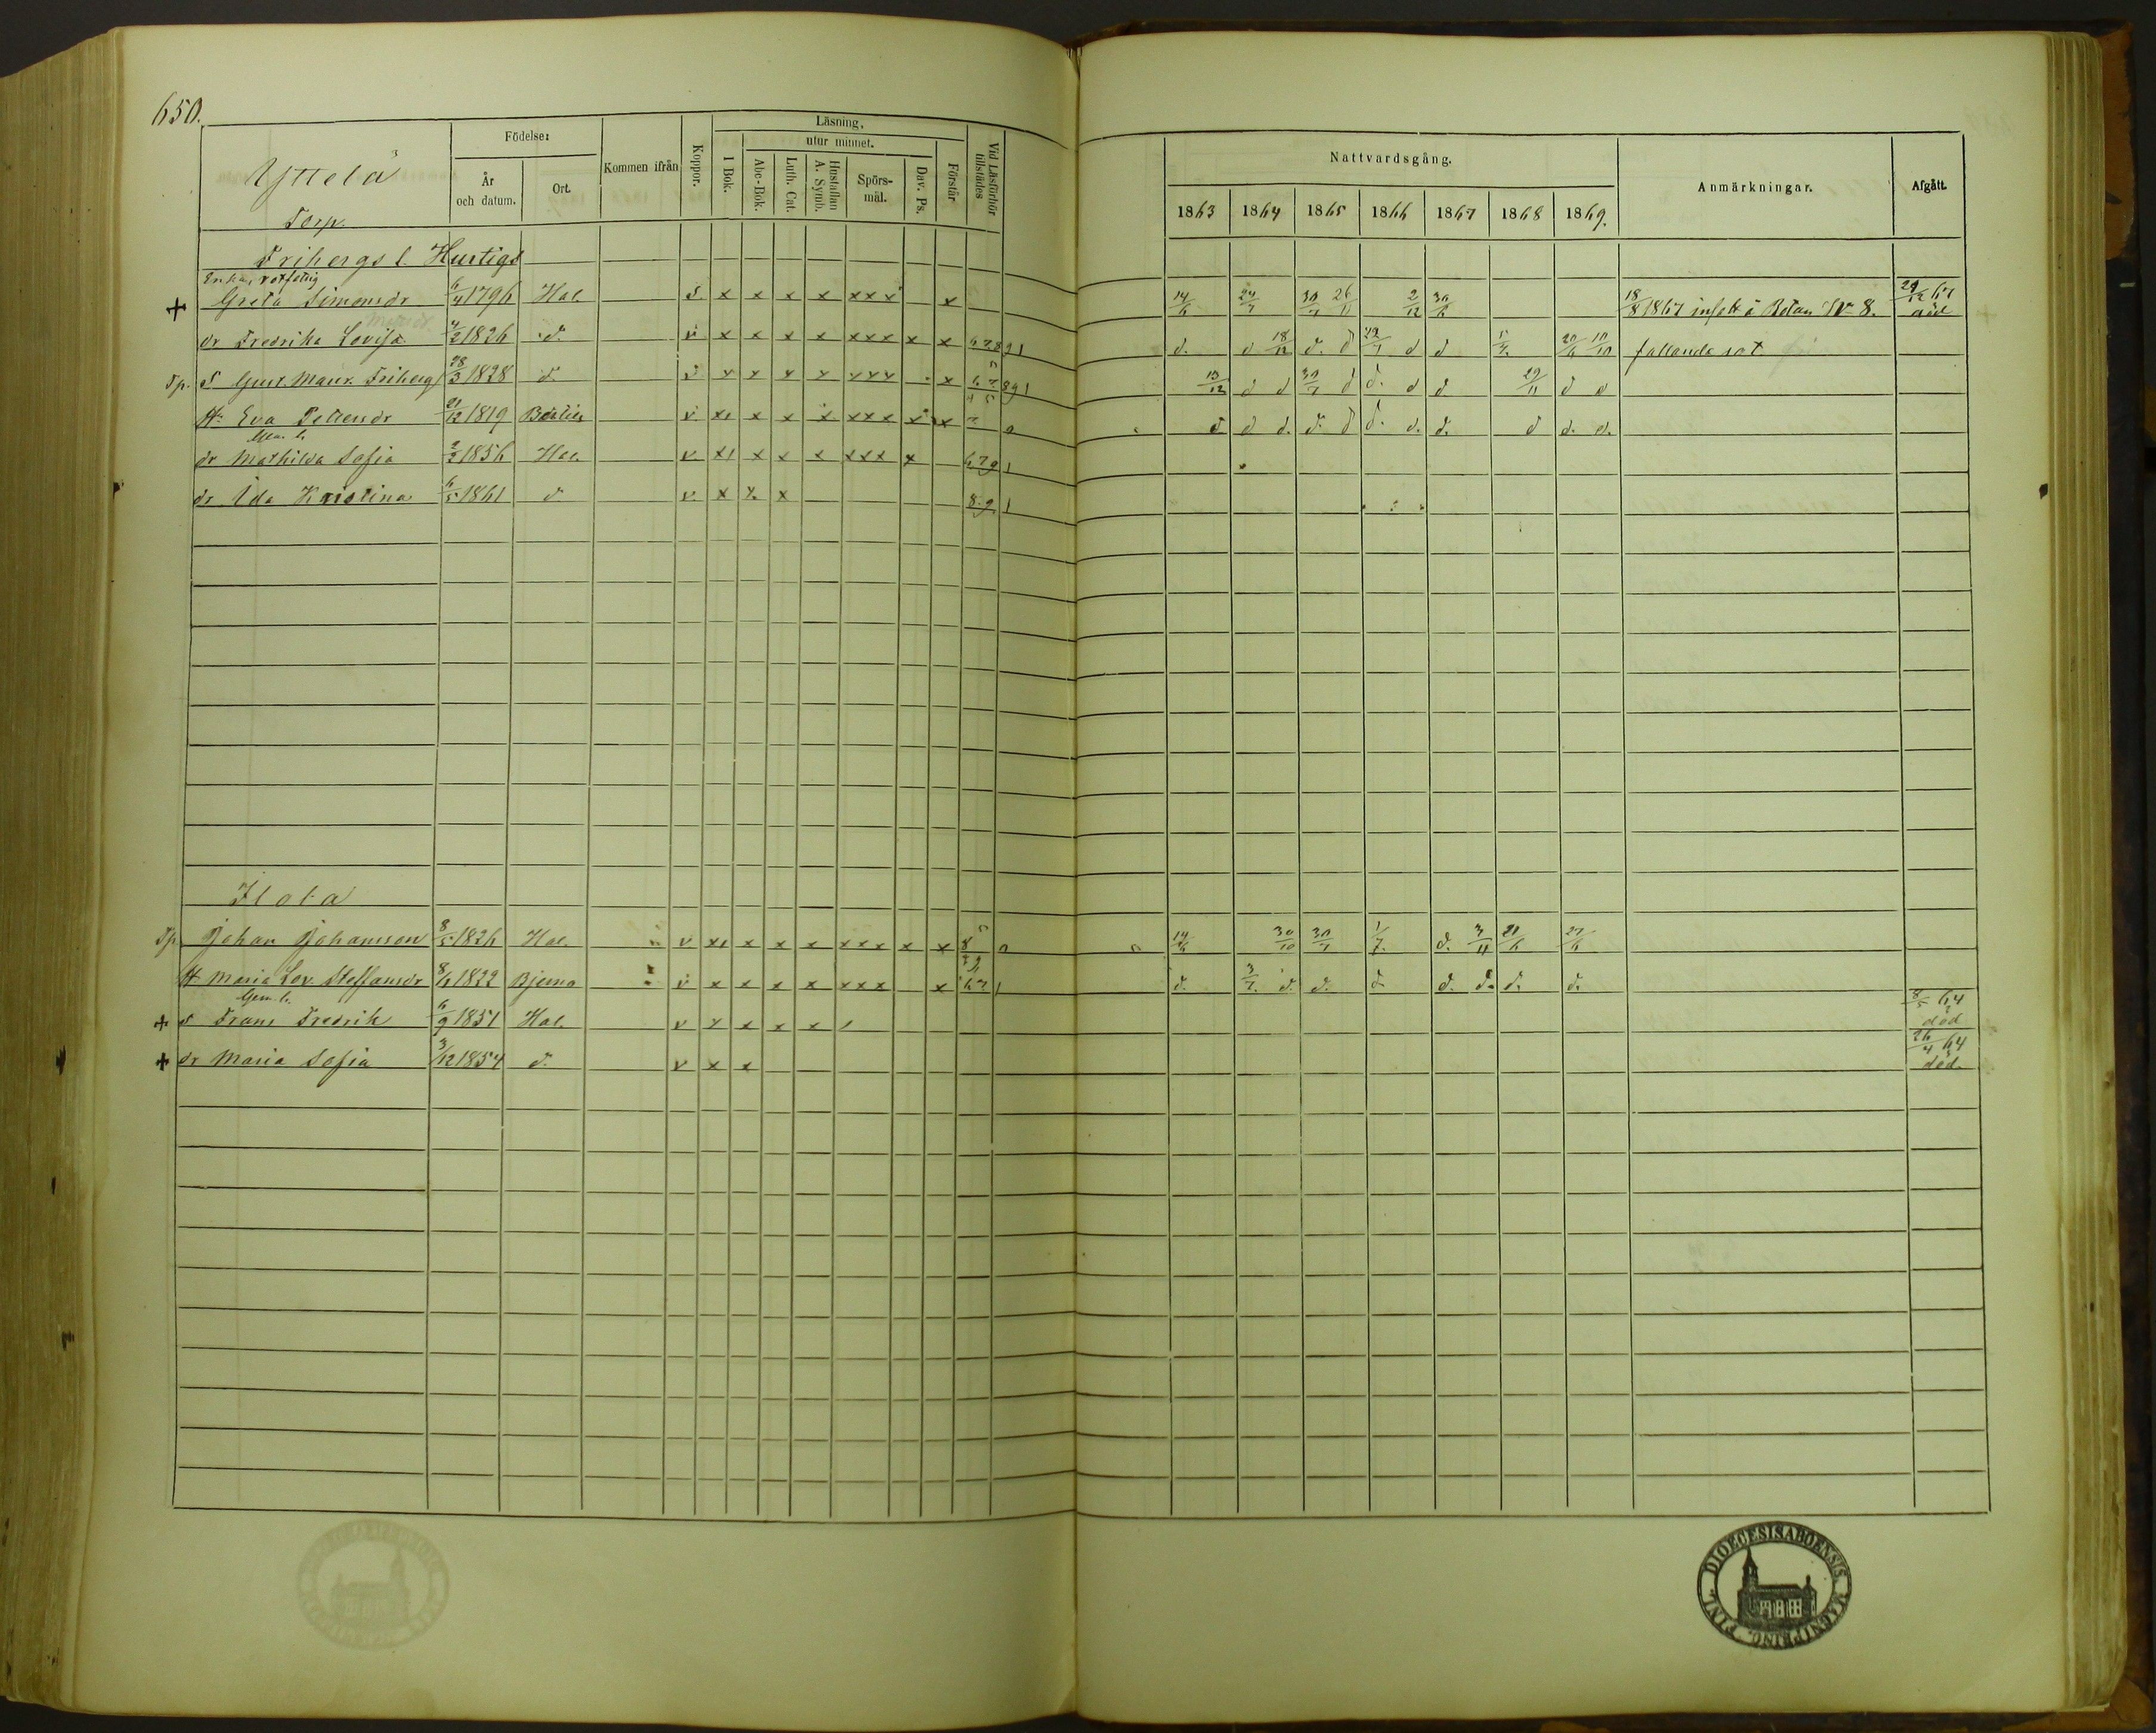 650.
Yttelä
Torp.
Födelse:
År och datum.
Ort.
Kommen ifrån
Koppor.
Läsning,
utur minnet.
I Bok.
Abc-Bok.
Luth. Cat.
Hustaflan A. Symb.
Spörs-mål.
Dav. Ps.
Förstår
Vid Läsförhör tillstädes
Nattvardsgång.
1863 1864 1865 1866 1867 1868 1869.
Anmärkningar.
Afgått.
Fribergs l. Hurtigs
Enka, rotfattig
Greta Simonsdr 6/4 1796 Hal. s. x x x x xxx x 14/6 24/7 30/7 26/11 2/12 30/6 18/8 1867 18/8 Nr 8. 29/12 67 död
dr Fredrika Lovisa 4/2 1826 d. v x x x x xxx x x 67891 d. d 18/12 d. d 22/7 d d 20/6 10/10 fallande sot
Tp. S Gust. Maur. Friberg 28/3 1828 d. v x x x x xxx x 13/12 d d 30/7 d d. d d. 29/11 d d
H. Eva 21/12 1819 v. x x x xxx x x d d d. d. d d. d. d. d d. d.
dr Mathilda Sofia 2/2 1856 Hal. v. x x x xxx x 679 1
dr Ida Kristina 6/5 1861 d v. x x. x 8.9 1
Tp. Johan Johansson 8/5 1826 Hal. v x x x xxx x x 8 14/6 30/10 30/7 1/7. d. 3/11 21/6 27/6
H Maria Lov. Steffansdr 8/6 1822 Bjerno v x x x x xxx x 67 1 d. 3/7. d. d. d. d. d. d. d.
s Frans Fredrik 6/9 1851 Hal. v x x x x 8/5 64 död
dr Maria Sofia 3/12 1854 d. v x x 26/4 64 död.
DIOECESIS ABOENSIS. MAGNI PRINC. FINL.